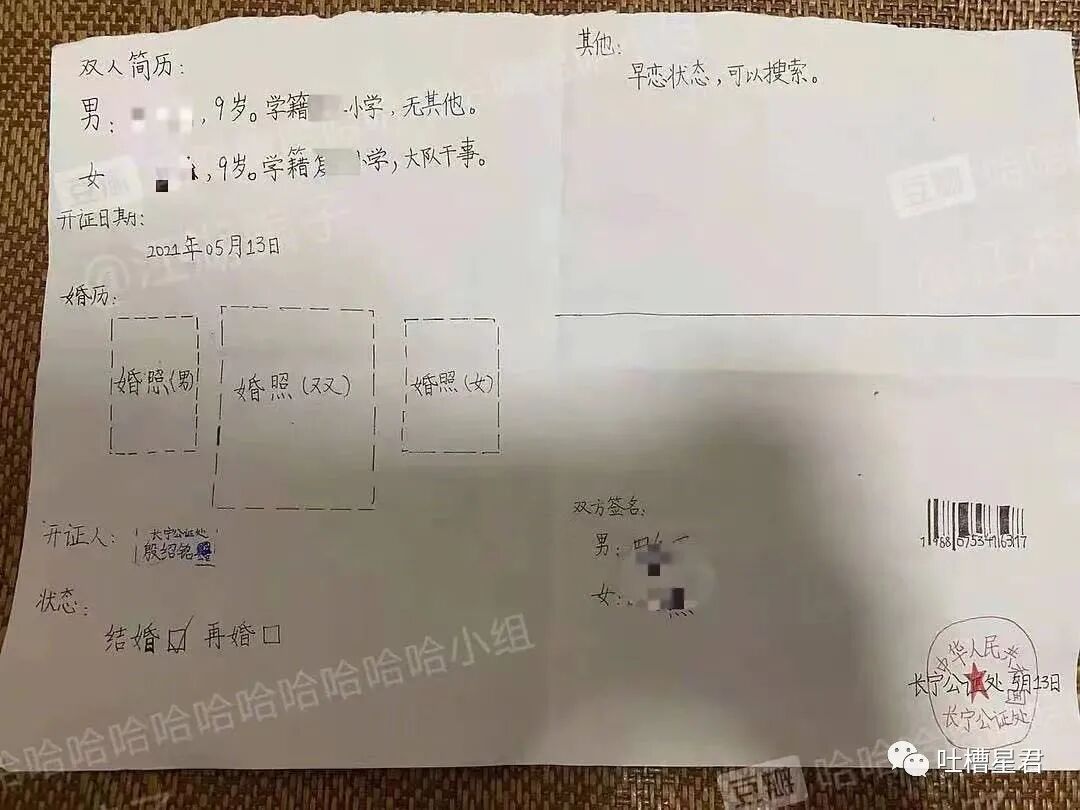 双人简历:
男: ,9岁。学籍 小学,无其他。
女 ,9岁。学籍 小学,大队干事。
开证日期:
2021年05月13日
婚历:
婚照(男)
婚照(双)
婚照(女)
开证人:
长宁公证处
殷绍铭
状态:
结婚 再婚
其他:
早恋状态,可以搜索。
双方签名:
男:
女:
中华人民共
长宁公证处 5月13日
长宁公证处
哈哈哈哈哈哈哈哈哈哈小组
豆瓣
吐槽星君